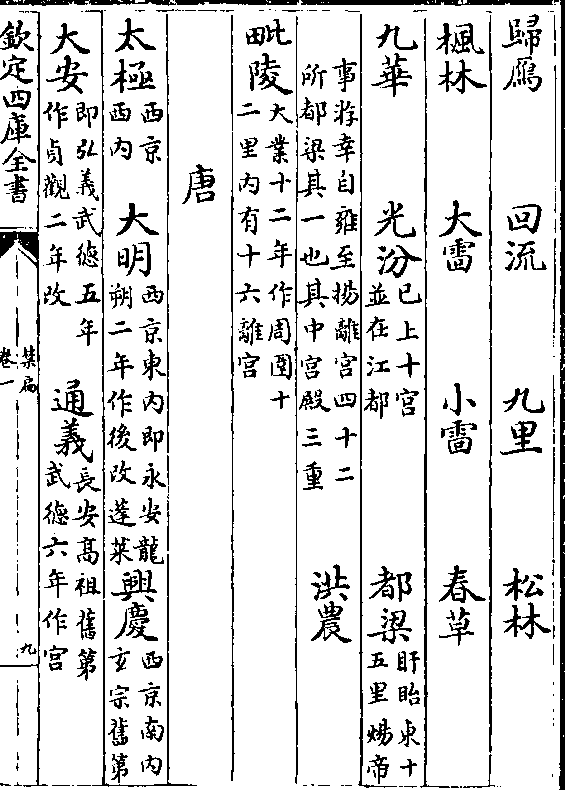 歸鴈 回流 九里 松林
楓林 大雷 小雷 春草
九華 光汾已上十宮並在江都 都梁盱眙東十五里煬帝
事游幸自雍至揚離宮四十二所都梁其一也其中宮殿三重 洪農
毗陵大業十二年作周圍十二里内有十六離宮
唐
太極西京西内 大明西京東内即永安龍朔二年作後改蓬萊 興慶西京南内玄宗舊第
大安即弘義武德五年作貞觀二年改 通義長安高祖舊第武德六年作宮
欽定四庫全書
禁扁
卷一
九